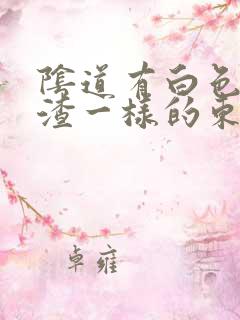 陰道有白色
渣一樣的東
卓雍